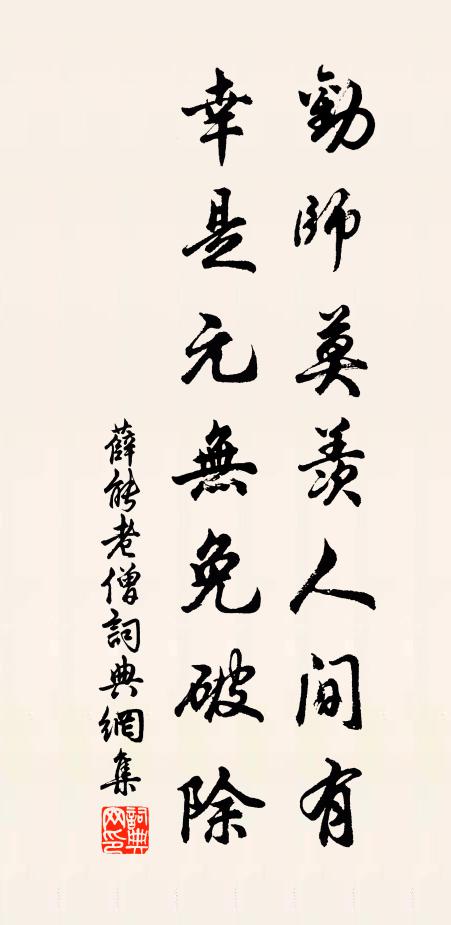 勸師莫羨人間有
幸是元無免破除
薛能老僧詞典網集
詞典網印